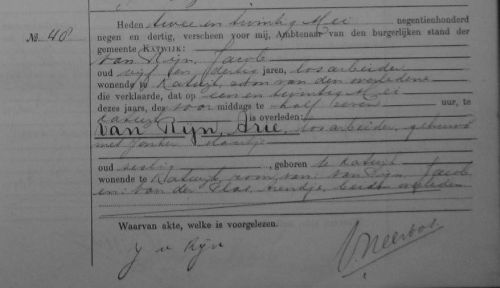 No. 48
Heden twee en twintig Mei negentienhonderd
negen en dertig, verscheen voor mij, Ambtenaar van den burgerlijken stand der
gemeente KATWIJK:
van Rijn, Jacob
oud vijf en dertig jaren, los arbeider
wonende te Katwijk, zoon van den overledene
die verklaarde, dat op een en twintig Mei
dezes jaars, des voor middags te half zeven uur, te
Katwijk is overleden:
van Rijn, Arie, los arbeider, gehuwd
met Jonker
oud zestig, geboren te Katwijk
wonende te Katwijk, zoon van: van Rijn, Jacob
en: van der Plas, Arendje, beiden overleden
Waarvan akte, welke is voorgelezen.
J v Rijn